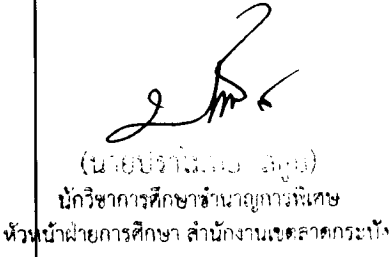 (นาย
นักวิชาการศึกษาชำนาญการพิเศษ
หัวหน้าฝ่ายการศึกษา สำนักงานเขตลาดกระบัง